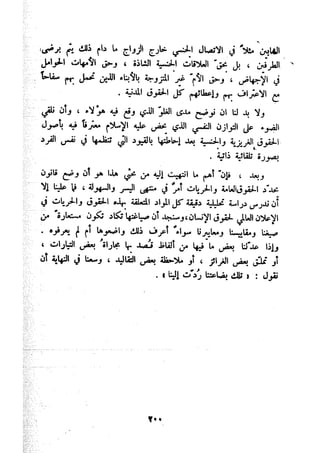 الهابين مثلاً في الاتصال الجنسي خارج الزواج ما دام ذلك يتم برضى
الطرفين ، بل بحق العلاقات الجنسية الشاذة ، وحق الأمهات الحوامل
في الإجهاض ، وحق الأم غير المتزوجة بالأبناء الذين تحمل بهم سفاحاً
مع الاعتراف بهم وإعطائهم كل الحقوق المدنية .
ولا بد لنا أن نوضح مدى الغلو الذي وقع فيه هؤلاء ، وأن نلقي
الضوء على التوازن النفسي الذي يحض عليه الإسلام معترفاً فيه بأصول
الحقوق الغريزية والجنسية بعد إحاطتها بالقيود التي تنظمها في نفس الفرد
بصورة تلقائية ذاتية .
وبعد ، فإن أهم ما انتهيت إليه من بحثي هذا هو أن وضع قانون
يحدد الحقوق العامة والحريات أمر في منتهى اليسر والسهولة ، فما علينا إلا
أن ندرس دراسة تحليلية دقيقة كل المواد المتعلقة بهذه الحقوق والحريات في
الإعلان العالمي لحقوق الإنسان، وسنجد أن صياغتها تكاد تكون مستعارة من
صيغنا ومقاييسنا ومعاييرنا سواء أعرف ذلك واضعوها أم لم يعرفوه .
وإذا عدلنا بعض ما فيها من ألفاظ قصد بها مجاراة بعض التيارات ،
أو تملق بعض الغرائز ، أو ملاحظة بعض التقاليد ، وسعنا في النهاية أن
نقول : « تلك بضاعتنا ردت إلينا » .
٢٠٠